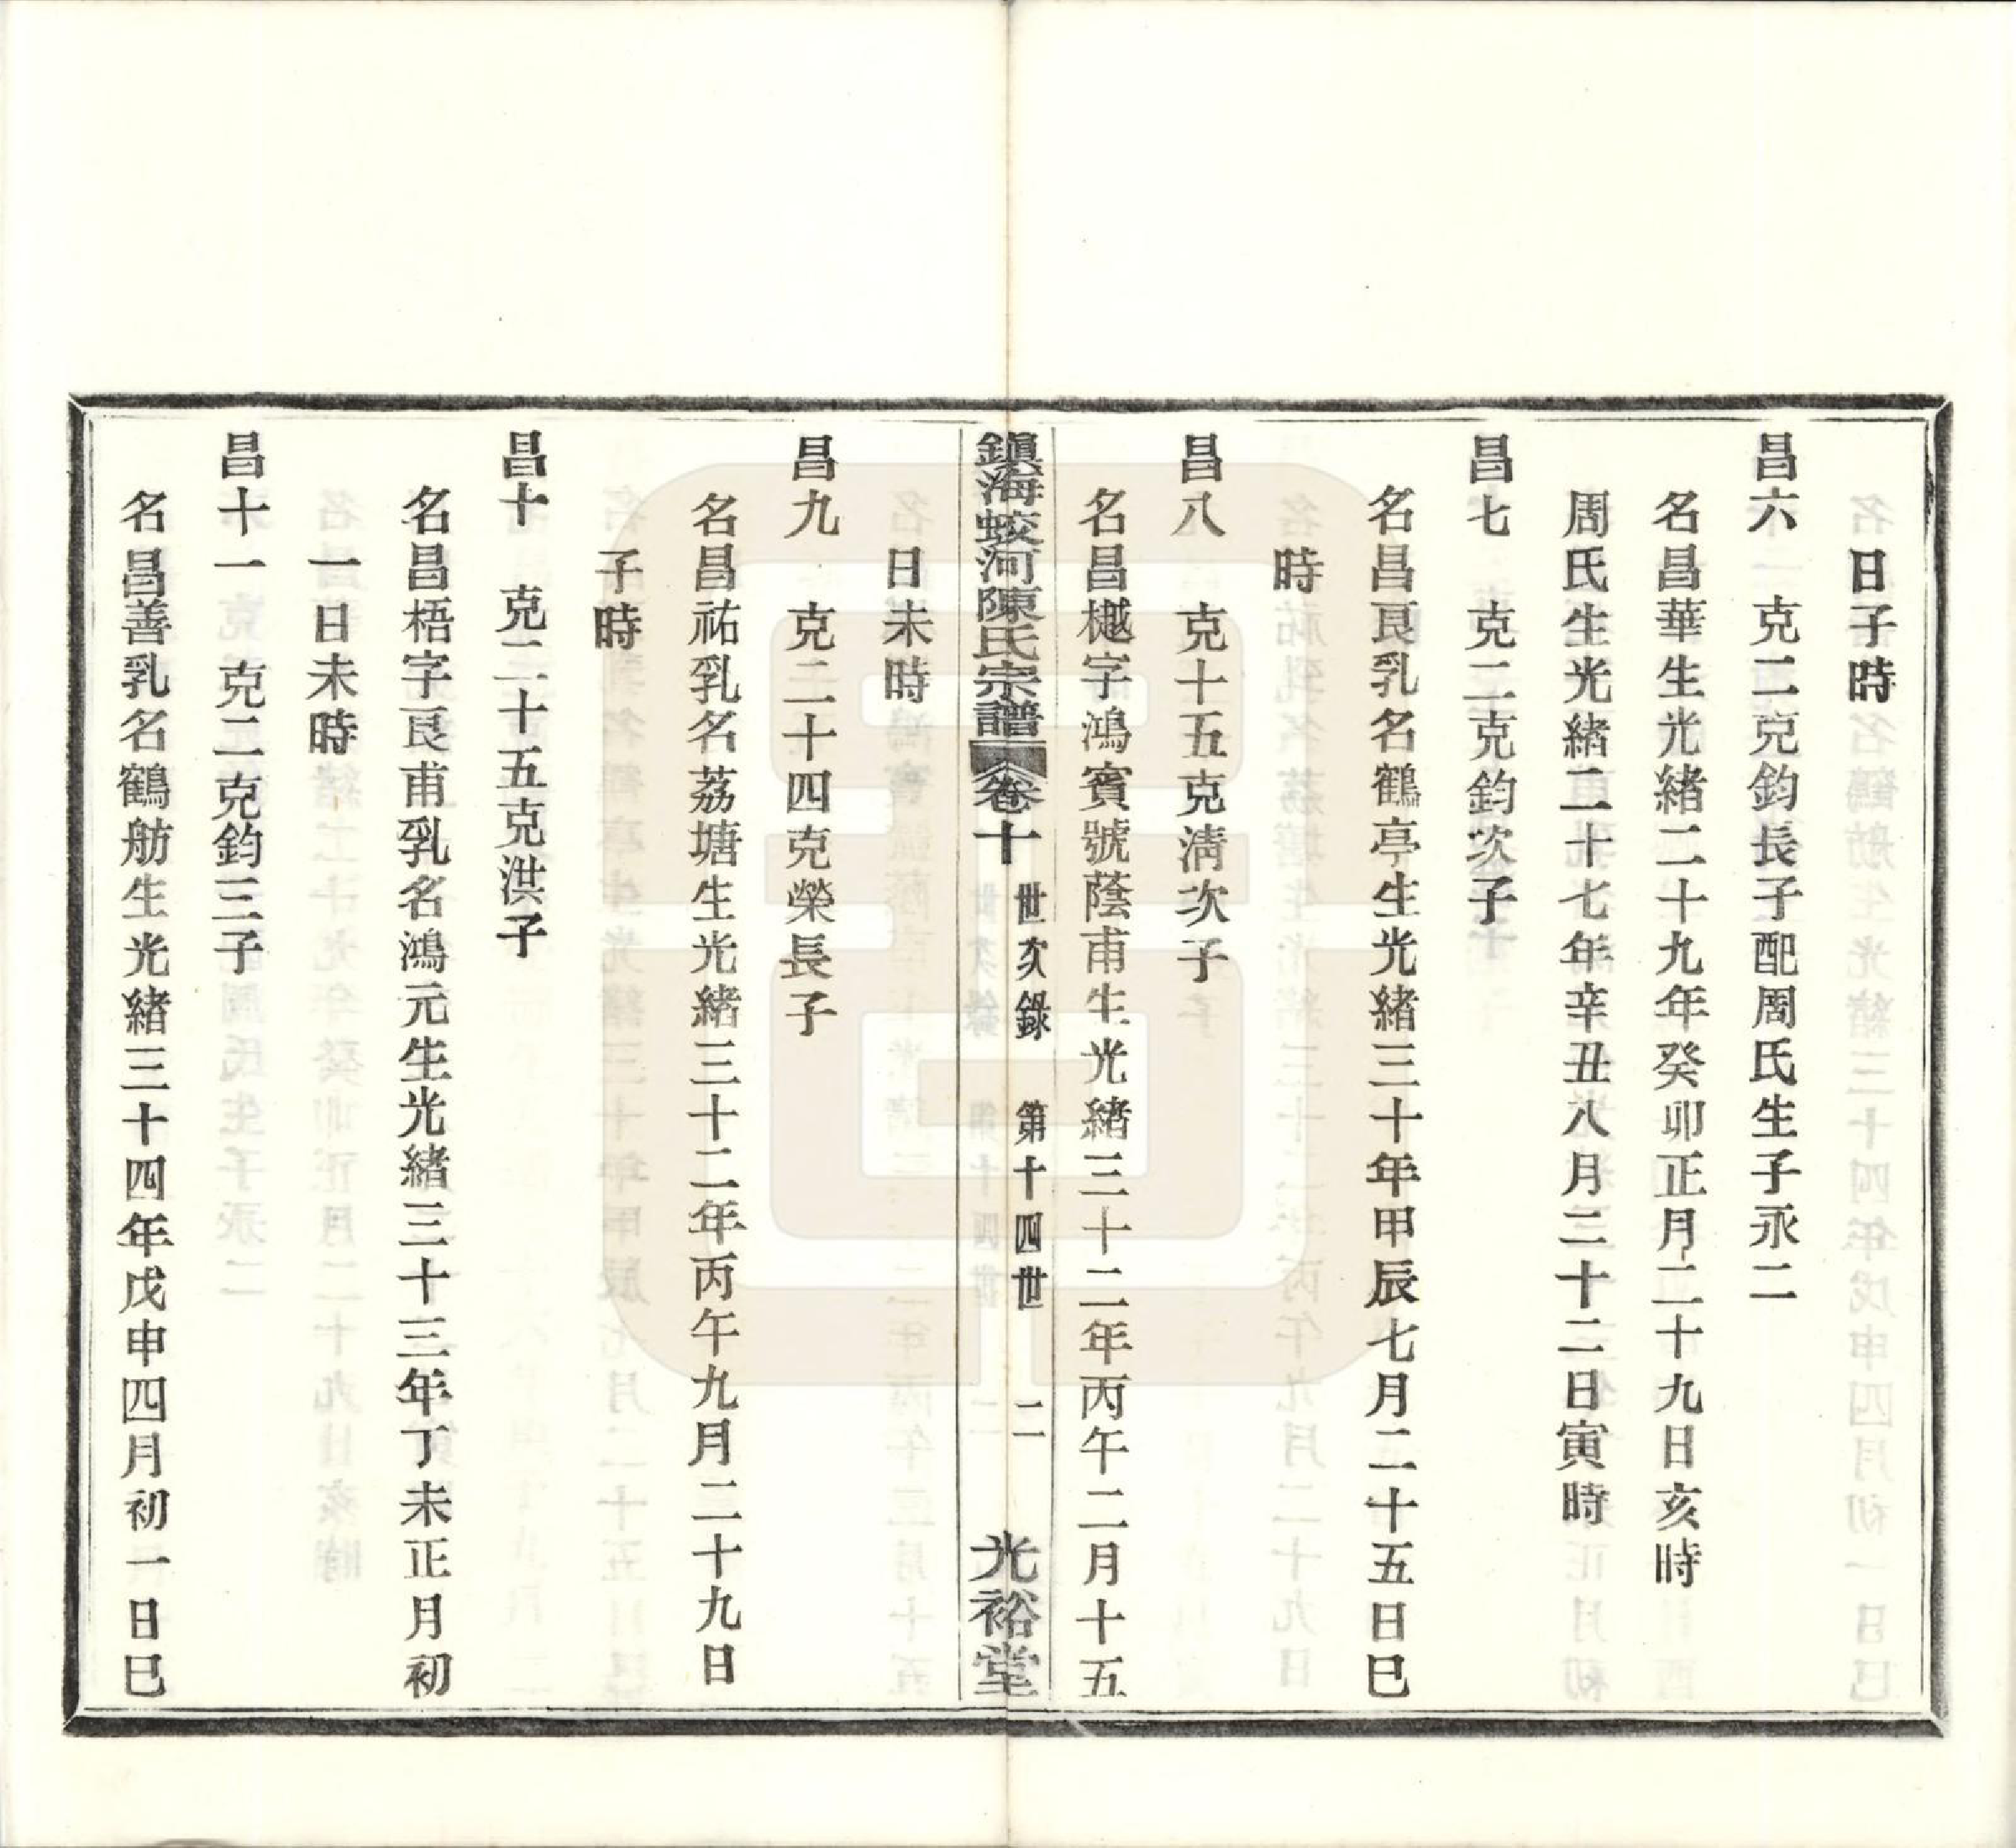 日子時
昌六　克二克鈞長子配周氏生子永二
名昌華生光緒二十九年癸卯正月二十九日亥時
周氏生光緒二十七年辛丑八月二十二日寅時
昌七　克二克鈞次子
名昌艮乳名鶴亭生光緒三十年甲辰七月二十五日巳
時
昌八　克十五克淸次子
名昌樾字鴻賓號蔭甫生光緒三十二年丙午二月十五
鎮海蛟河陳氏宗譜　卷十　世次錄　第十四世　二　光裕堂
日未時
昌九　克二十四克榮長子
名昌祐乳名荔塘生光緒三十二年丙午九月二十九日
子時
昌十　克二十五克洪子
名昌梧字艮甫乳名鴻元生光緒三十三年丁未正月初
一日未時
昌十一　克二克鈞三子
名昌善乳名鶴舫生光緒三十四年戊申四月初一日巳